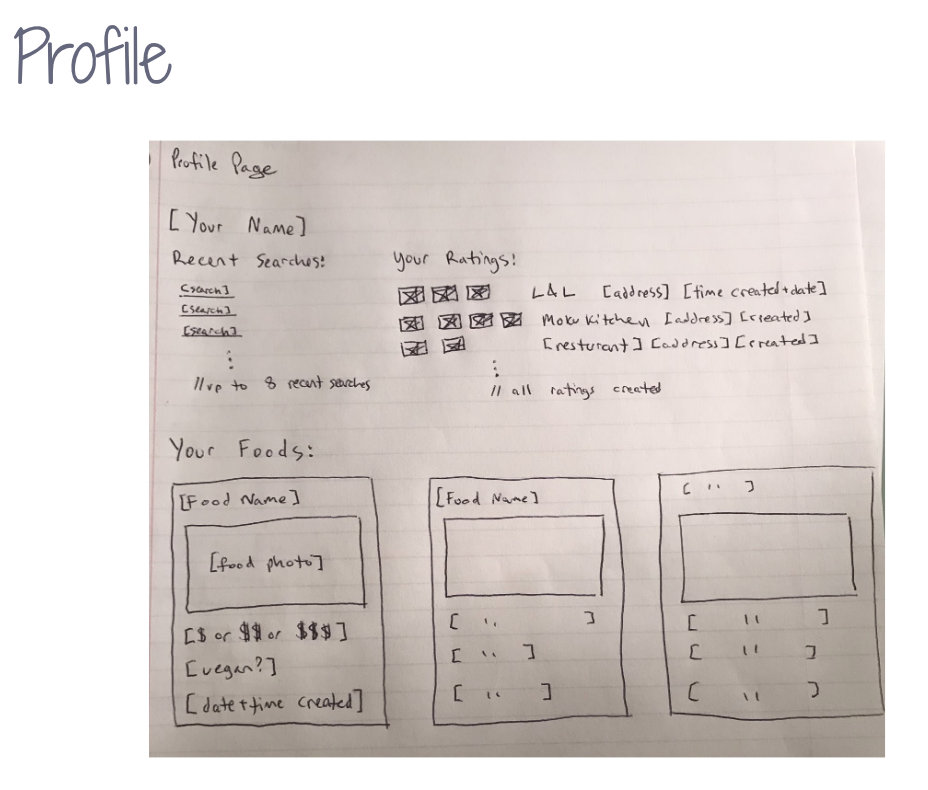 Profile
Profile Page
[Your Name]
Recent Searches!
[search]
[search]
[search]
//up to 8 recent searches
Your Ratings!
L&L [address] [time created+date]
Moku Kitchen [address] [created]
[resturant] [address] [created]
// all ratings created
Your Foods:
[Food Name]
[food photo]
[$ or $$ or $$$]
[vegan?]
[date+time created]
[Food Name]
[ " ]
[ " ]
[ " ]
[ " ]
[ " ]
[ " ]
[ " ]